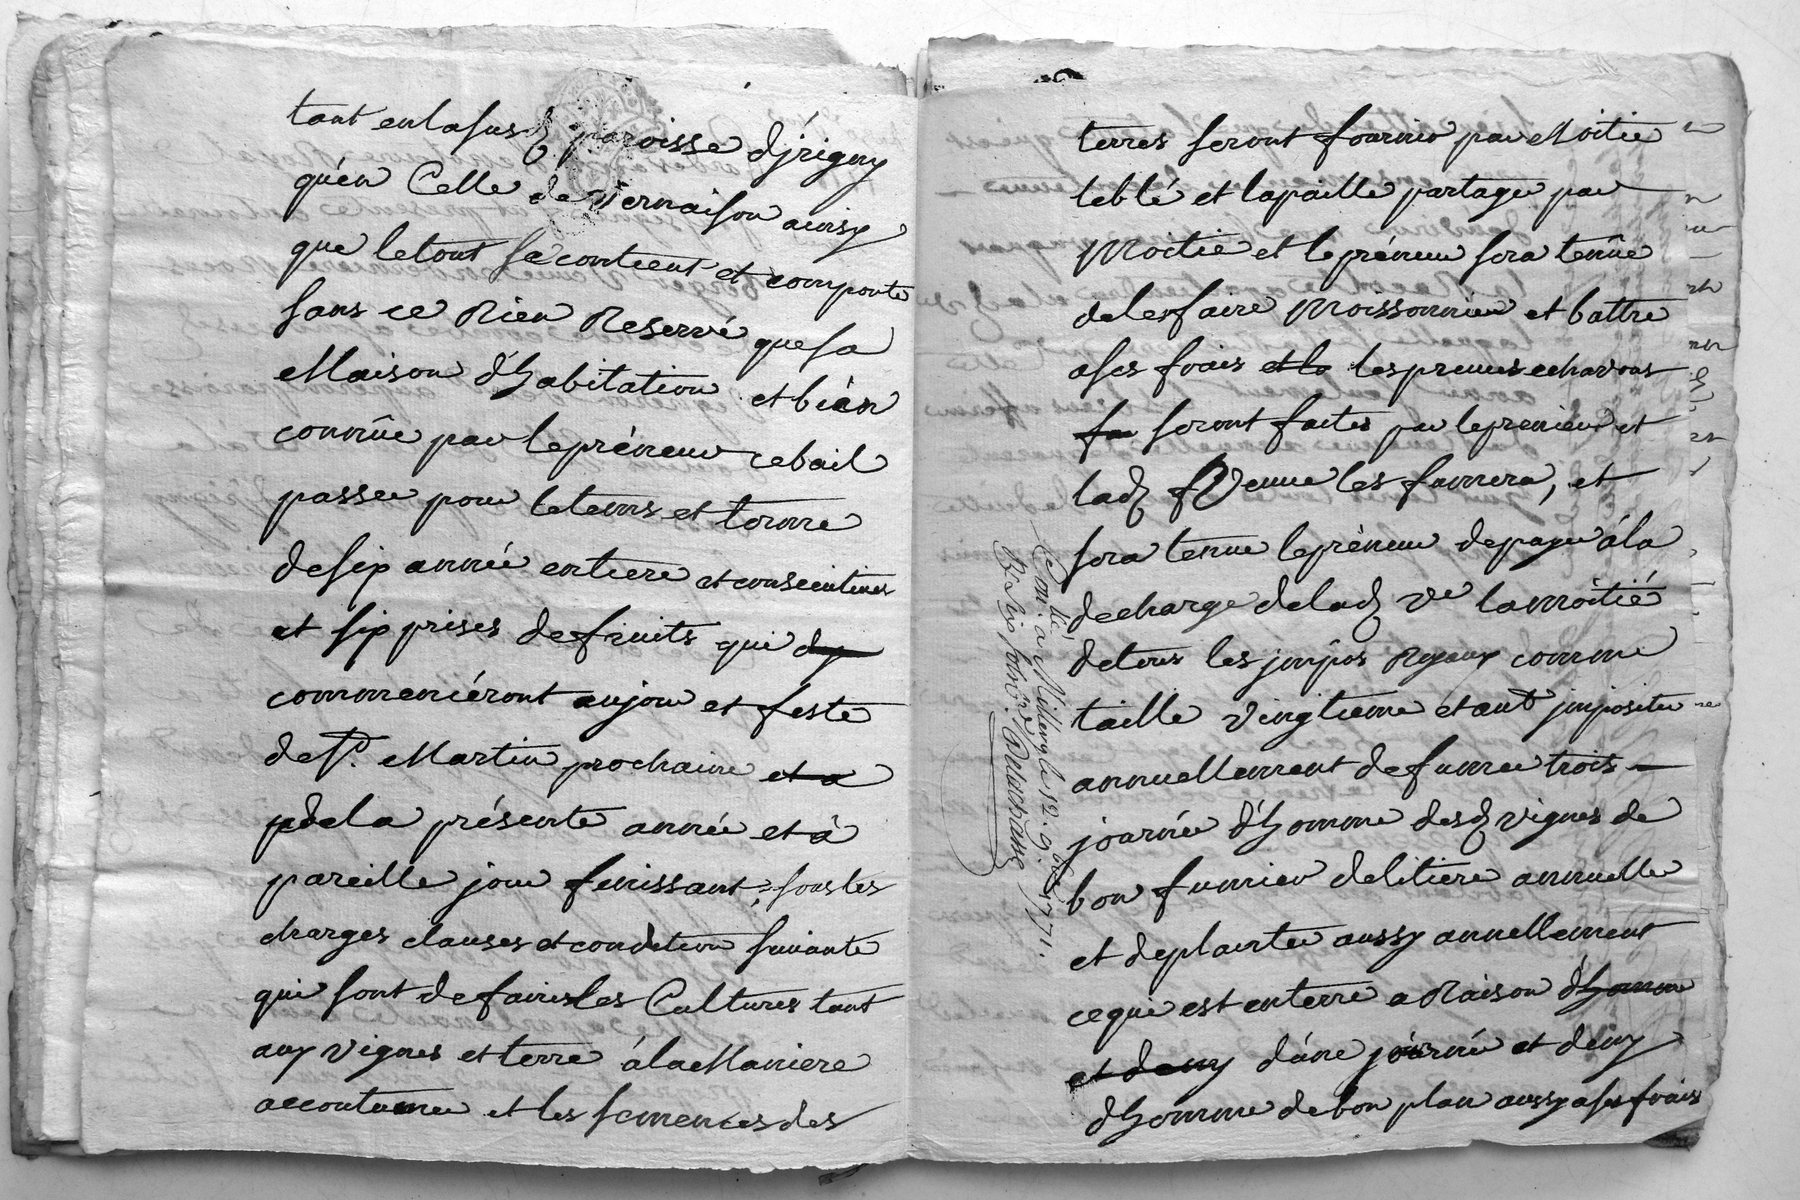 tant en lasusd paroisse d'jrigny
qu'en Celle de Vernaison ainsy
que letout se contient et comporte
sans ce Rien Reservé que sa
Maison d'habitation et bien
connüe par lepréneur cebail
passee pour letems et terme
desix année entiere et consecutives
et six prises defruits qui
commenceront aujour et feste
de St. Martin prochaine et a
dela présente année et à
pareille jour finissant, sous les
charges clauses et condition suivante
qui sont defaire les Cultures tant
aux vignes et terre àla Maniere
accoutumee et les semences des
terres seront fournis par Moitie
leblé et lapaille partage par
Moitie et lepréneur sera tenüe
delesfaire Moissonner et battre
ases frais et la les preunes echavons
seront faites par lepreneur et
lad Veuve les fumera, et
sera tenue lepréneur depayer àla
decharge delad ve lamoitié
detous les jmpos Royaux comme
taille vingtieme et autre
annuellement defumer trois
journée d'homme desd vignes de
bon fumier delitiere annuelle
et deplanter aussy annellement
cequi est enterre a Raison d'homme
et demy d'une journée et demy
d'homme debon plan aussy ases frais
Con.lé a Millery le 12. 9.bre 1771.
Delachasse